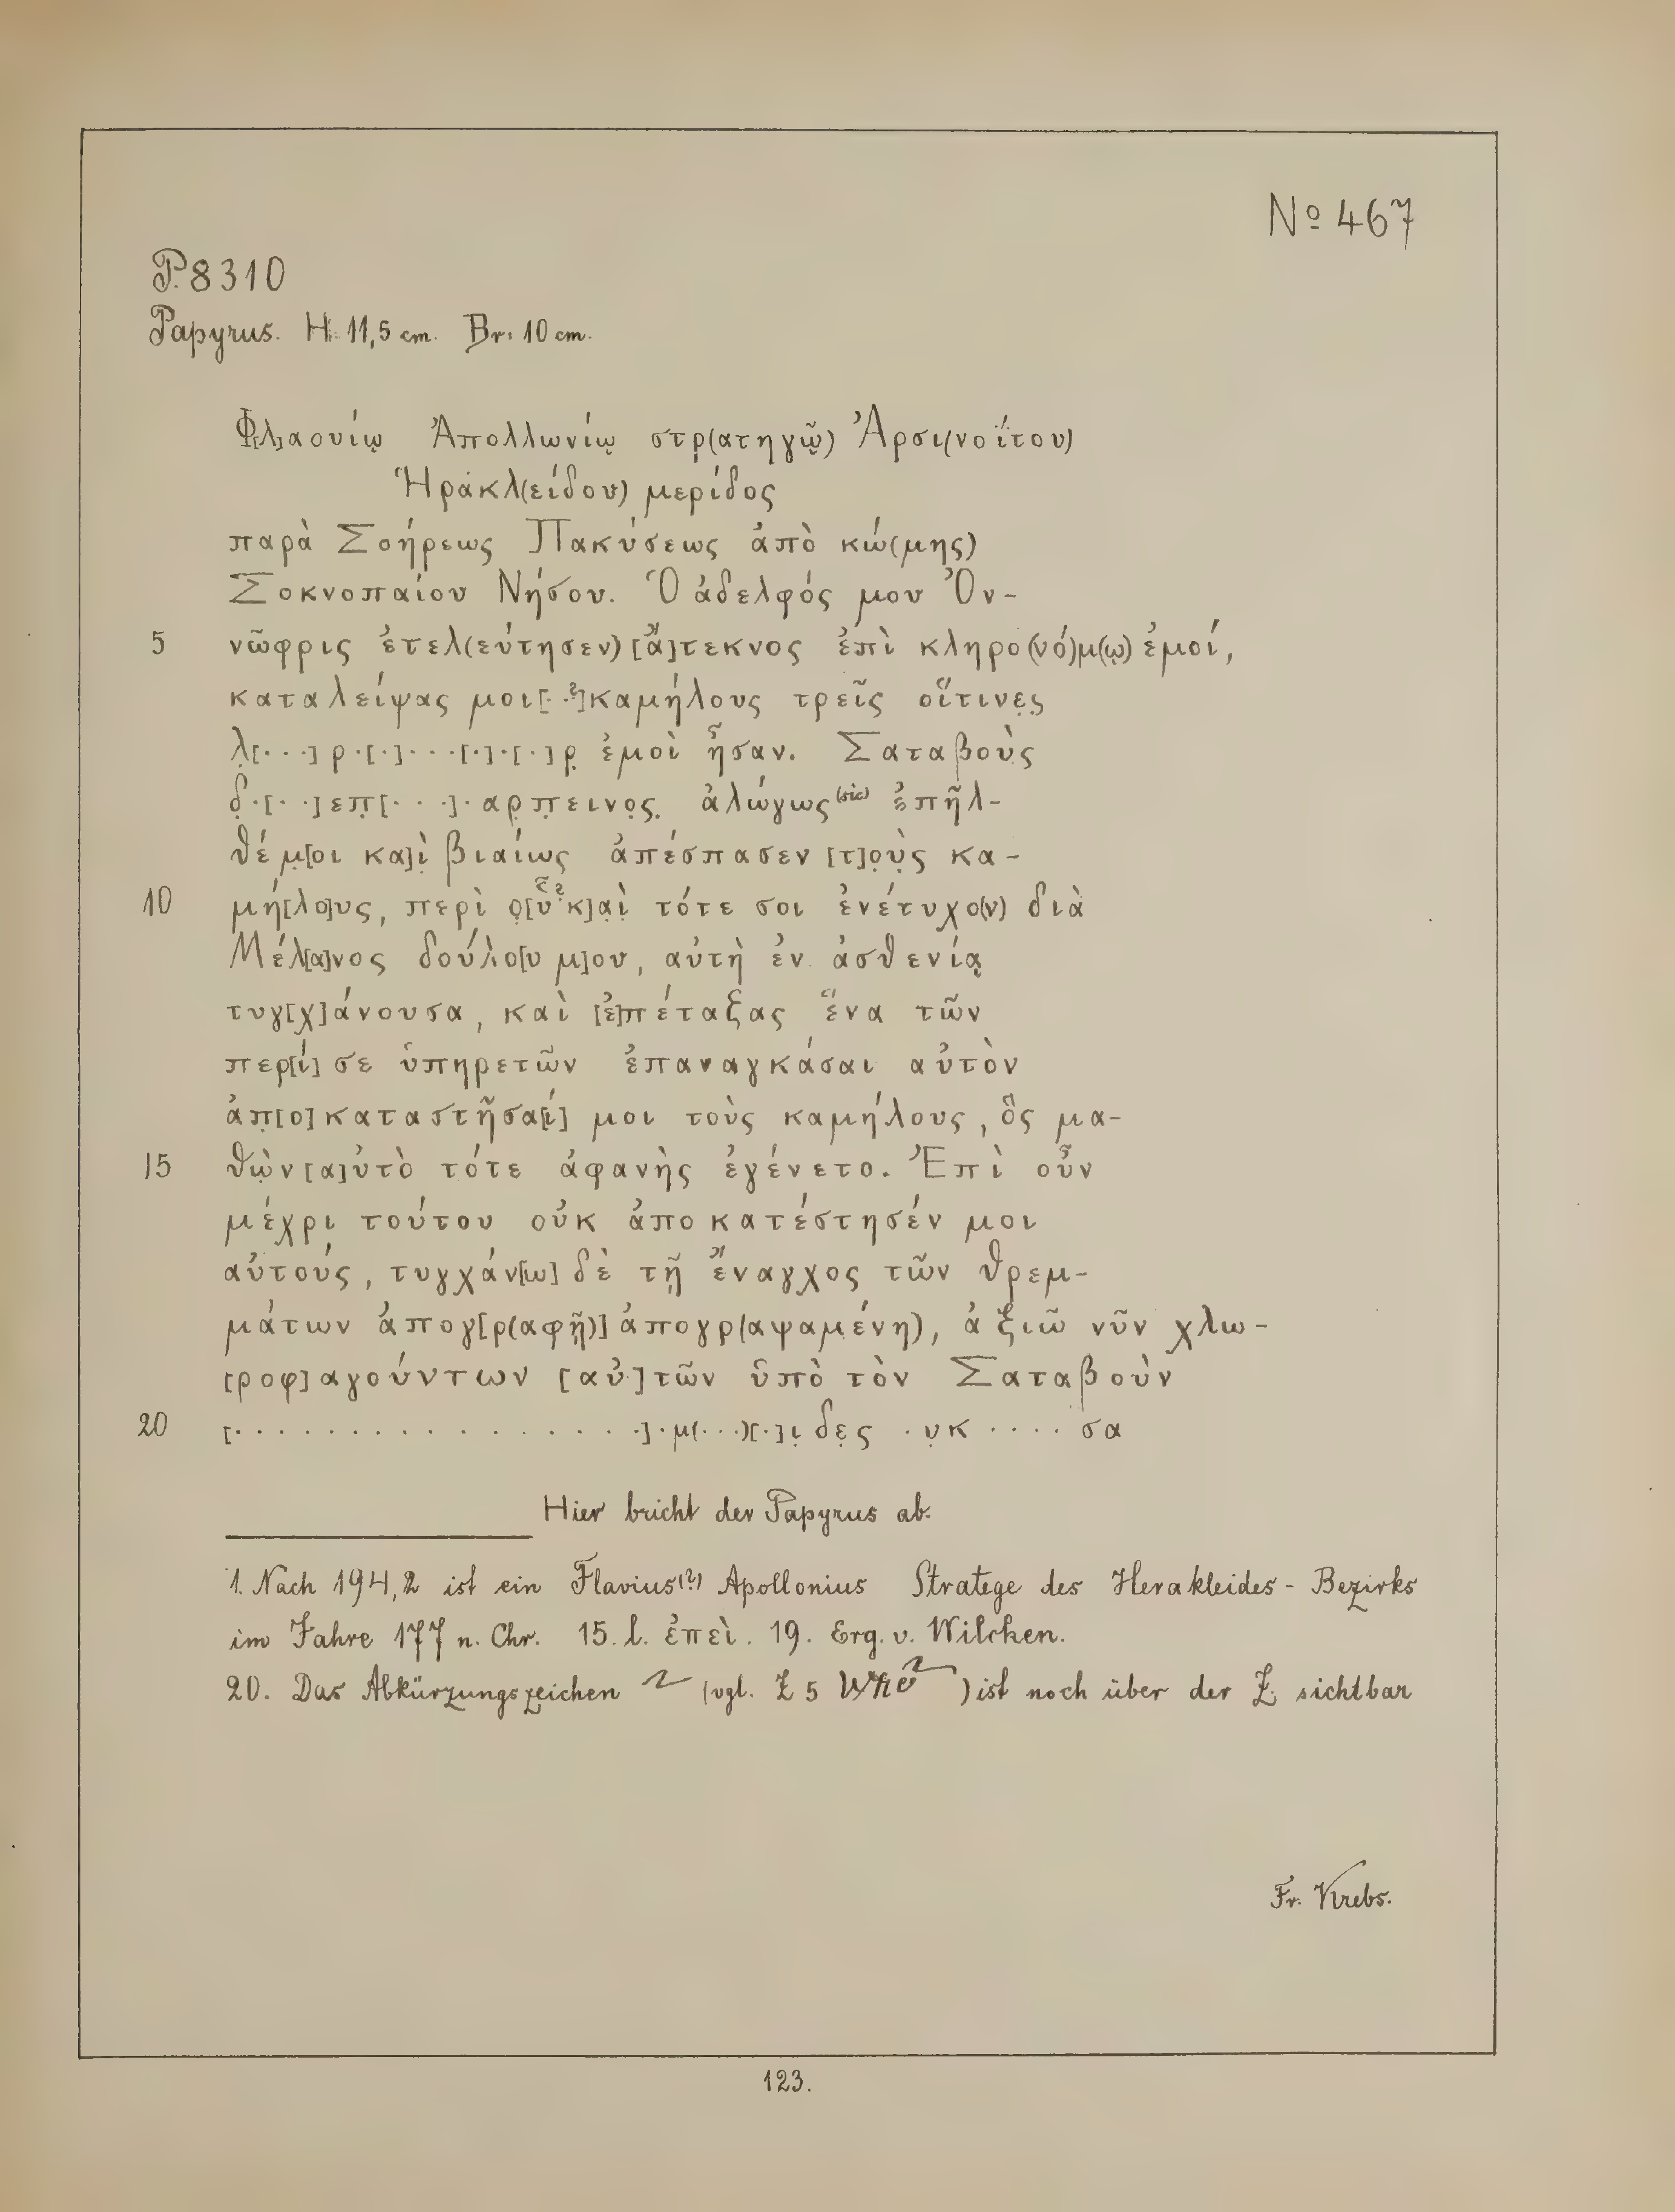 № 467
P. 8310
Papyrus. H: 11,5 cm. Br: 10 cm.
Φ[λ]αουίῳ Ἀπολλωνίῳ στρ(ατηγῷ) Ἀρσι(νοΐτου)
Ἡρακλ(είδου) μερίδος
παρὰ Σοήρεως Πακύσεως ἀπὸ κώ(μης)
Σοκνοπαίου Νήσου. Ὁ ἀδελφός μου Ὀν-
5 νῶφρις ἐτελ(εύτησεν) [ἄ]τεκνος ἐπὶ κληρο(νό)μ(ῳ) ἐμοί,
καταλείψας μοι[··?]καμήλους τρεῖς οἵτινε̣ς̣
λ̣[···]ρ·[·]···[·]·[·]ρ̣ ἐμοὶ ἦσαν. Σαταβοὺς
δ̣·[··]επ̣[···]·αρ̣π̣εινο̣ς̣ ἀλώγως(sic) ἐπῆλ-
θέ μ̣[οι κα]ὶ̣ βιαίως ἀπέσπασεν [τ]ο̣ὺ̣ς κα-
10 μή[λο]υς, περὶ ο̣[ὗ κ]α̣ὶ̣ τότε σοι ἐνέτυχο(ν) διὰ
Μέλ[α]νος δούλο[υ μ]ου, αὐτὴ ἐν ἀσθενίᾳ
τυγ[χ]άνουσα, καὶ [ἐ]πέταξας ἕνα τῶν
περ[ί] σε ὑπηρετῶν ἐπαναγκάσαι αὐτὸν
ἀπ̣[ο]καταστῆσα[ί] μοι τοὺς καμήλους, ὃς μα-
15 θὼ̣ν [α]ὐτὸ τότε ἀφανὴς ἐγένετο. Ἐπὶ οὖν
μέχρι τούτου οὐκ ἀποκατέστησέν μοι
αὐτούς, τυγχάν[ω] δὲ τῇ ἔναγχος τῶν θρεμ-
μάτων ἀπογ[ρ(αφῇ)] ἀπογρ(αψαμένη), ἀξιῶ νῦν χλω-
[ροφ]αγούντων [αὐ]τῶν ὑπὸ τὸν Σαταβοὺν
20 [·················]·μ(···)[·]ι̣ δε̣ς ·υ̣κ····σα
Hier bricht der Papyrus ab.
1. Nach 194,2 ist ein Flavius(?) Apollonius Stratege des Herakleides-Bezirks
im Jahre 177 n. Chr. 15. l. ἐπεὶ. 19. Erg. v. Wilcken.
20. Das Abkürzungszeichen (vgl. Z 5) ist noch über der Z. sichtbar
Fr. Krebs.
123.